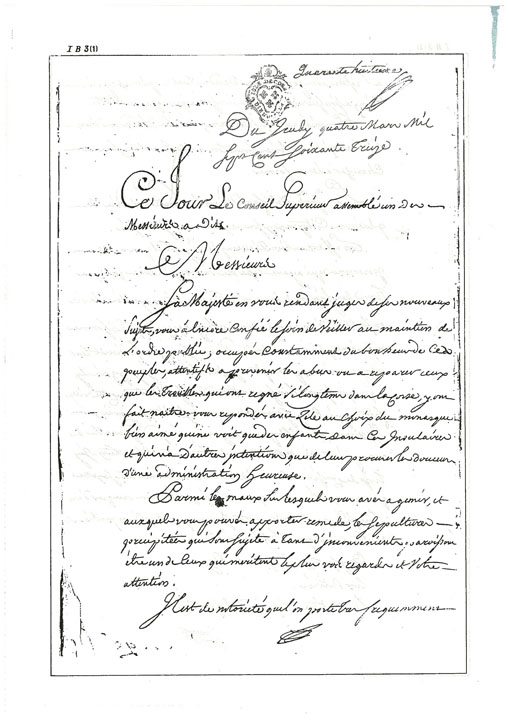 I B 3(1)
Quarante huitieme
Du Jeudy quatre Mars Mil
Sept Cent Soixante Treize
Ce Jour Le Conseil Superieur assemblé un De
Messieurs a Dit
Messieurs
Sa Majesté en vous rendant juges de ses nouveaux
Sujets, vous a Confié le soin de Veiller au maintien de
L'ordre public; occupés Constamment du bonheur de Ces
peuples, attentifs a prevenir les abus ou a reparer ceux
que les Troubles qui ont regné Si longtems dans la Corse, y ont
fait naitre: vous repondés avec Zele au Choix du monarque
bien aimé qui ne voit que des enfants dans Ces Insulaires
et qui n'a D'autres intentions que de leur procurer les Douceurs
d'une administration heureuse.
Parmi les maux Sur lesquels vous avés a gemir, et
auxquels vous pouvés apporter remede, les sepultures
precipitées qui Sont Sujetes a Tant d'inconvenients,
être un de Ceux qui meritent le plus vos regards et Votre
attention.
Il est de notorieté que l'on porte tres frequemment